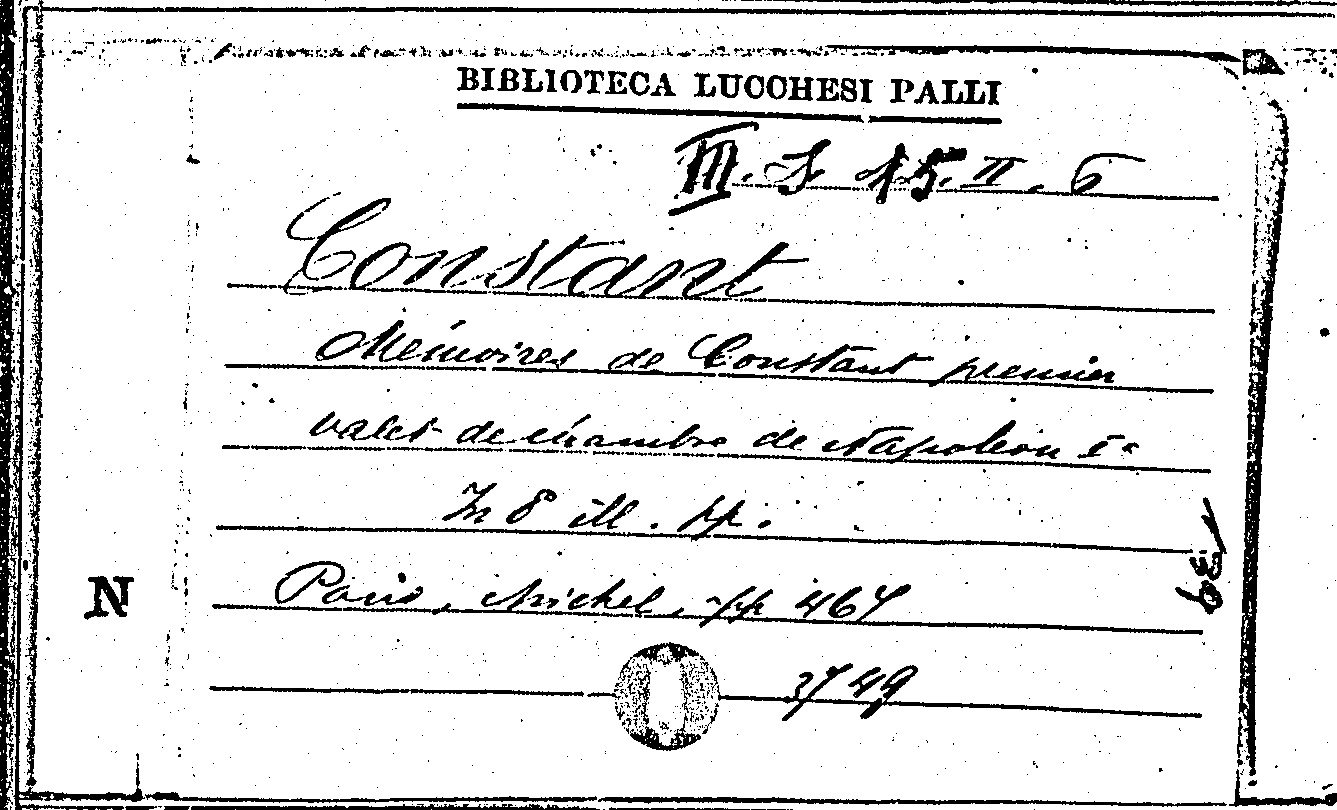 BIBLIOTECA LUCCHESI PALLI
III. S 15. II. 6
Constant
Mémoires de Constant premier
valet de chambre de Napoléon Ie
In 8 ill. pp.
Paris, Michel, pp 467
N
3749